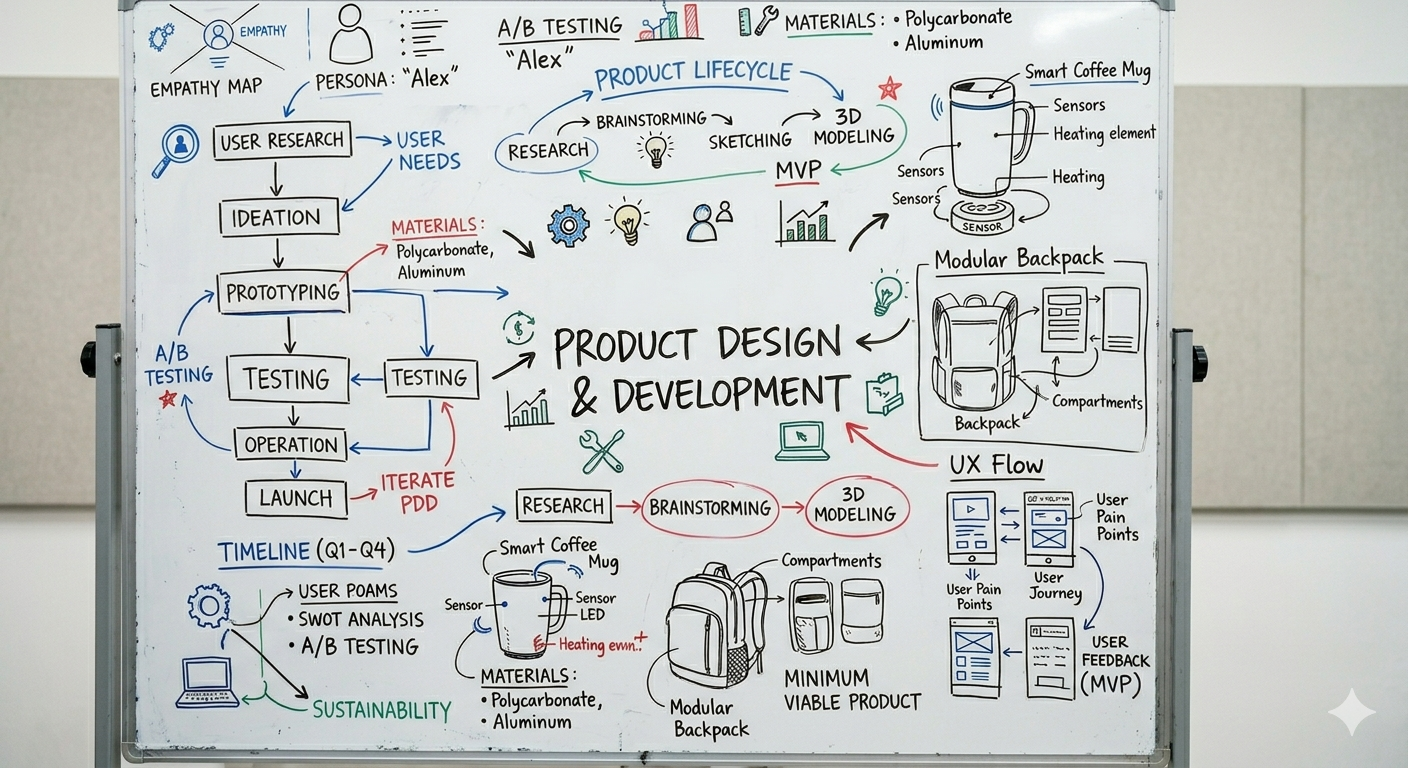 EMPATHY
EMPATHY MAP
PERSONA: "Alex"
A/B TESTING
"Alex"
MATERIALS:
• Polycarbonate
• Aluminum
PRODUCT LIFECYCLE
RESEARCH
BRAINSTORMING
SKETCHING
3D
MODELING
MVP
Smart Coffee Mug
Sensors
Heating element
Heating
Sensors
Sensors
SENSOR
USER RESEARCH
USER
NEEDS
IDEATION
MATERIALS:
Polycarbonate,
Aluminum
PROTOTYPING
A/B
TESTING
TESTING
TESTING
OPERATION
LAUNCH
ITERATE
PDD
PRODUCT DESIGN
& DEVELOPMENT
$
Modular Backpack
Compartments
Backpack
UX Flow
User
Pain
Points
User Pain
Points
User
Journey
USER
FEEDBACK
(MVP)
RESEARCH
BRAINSTORMING
3D
MODELING
TIMELINE (Q1-Q4)
USER POAMS
• SWOT ANALYSIS
• A/B TESTING
SUSTAINABILITY
Smart Coffee
Mug
Sensor
Sensor
LED
Heating
MATERIALS:
• Polycarbonate,
• Aluminum
Compartments
Modular
Backpack
MINIMUM
VIABLE PRODUCT